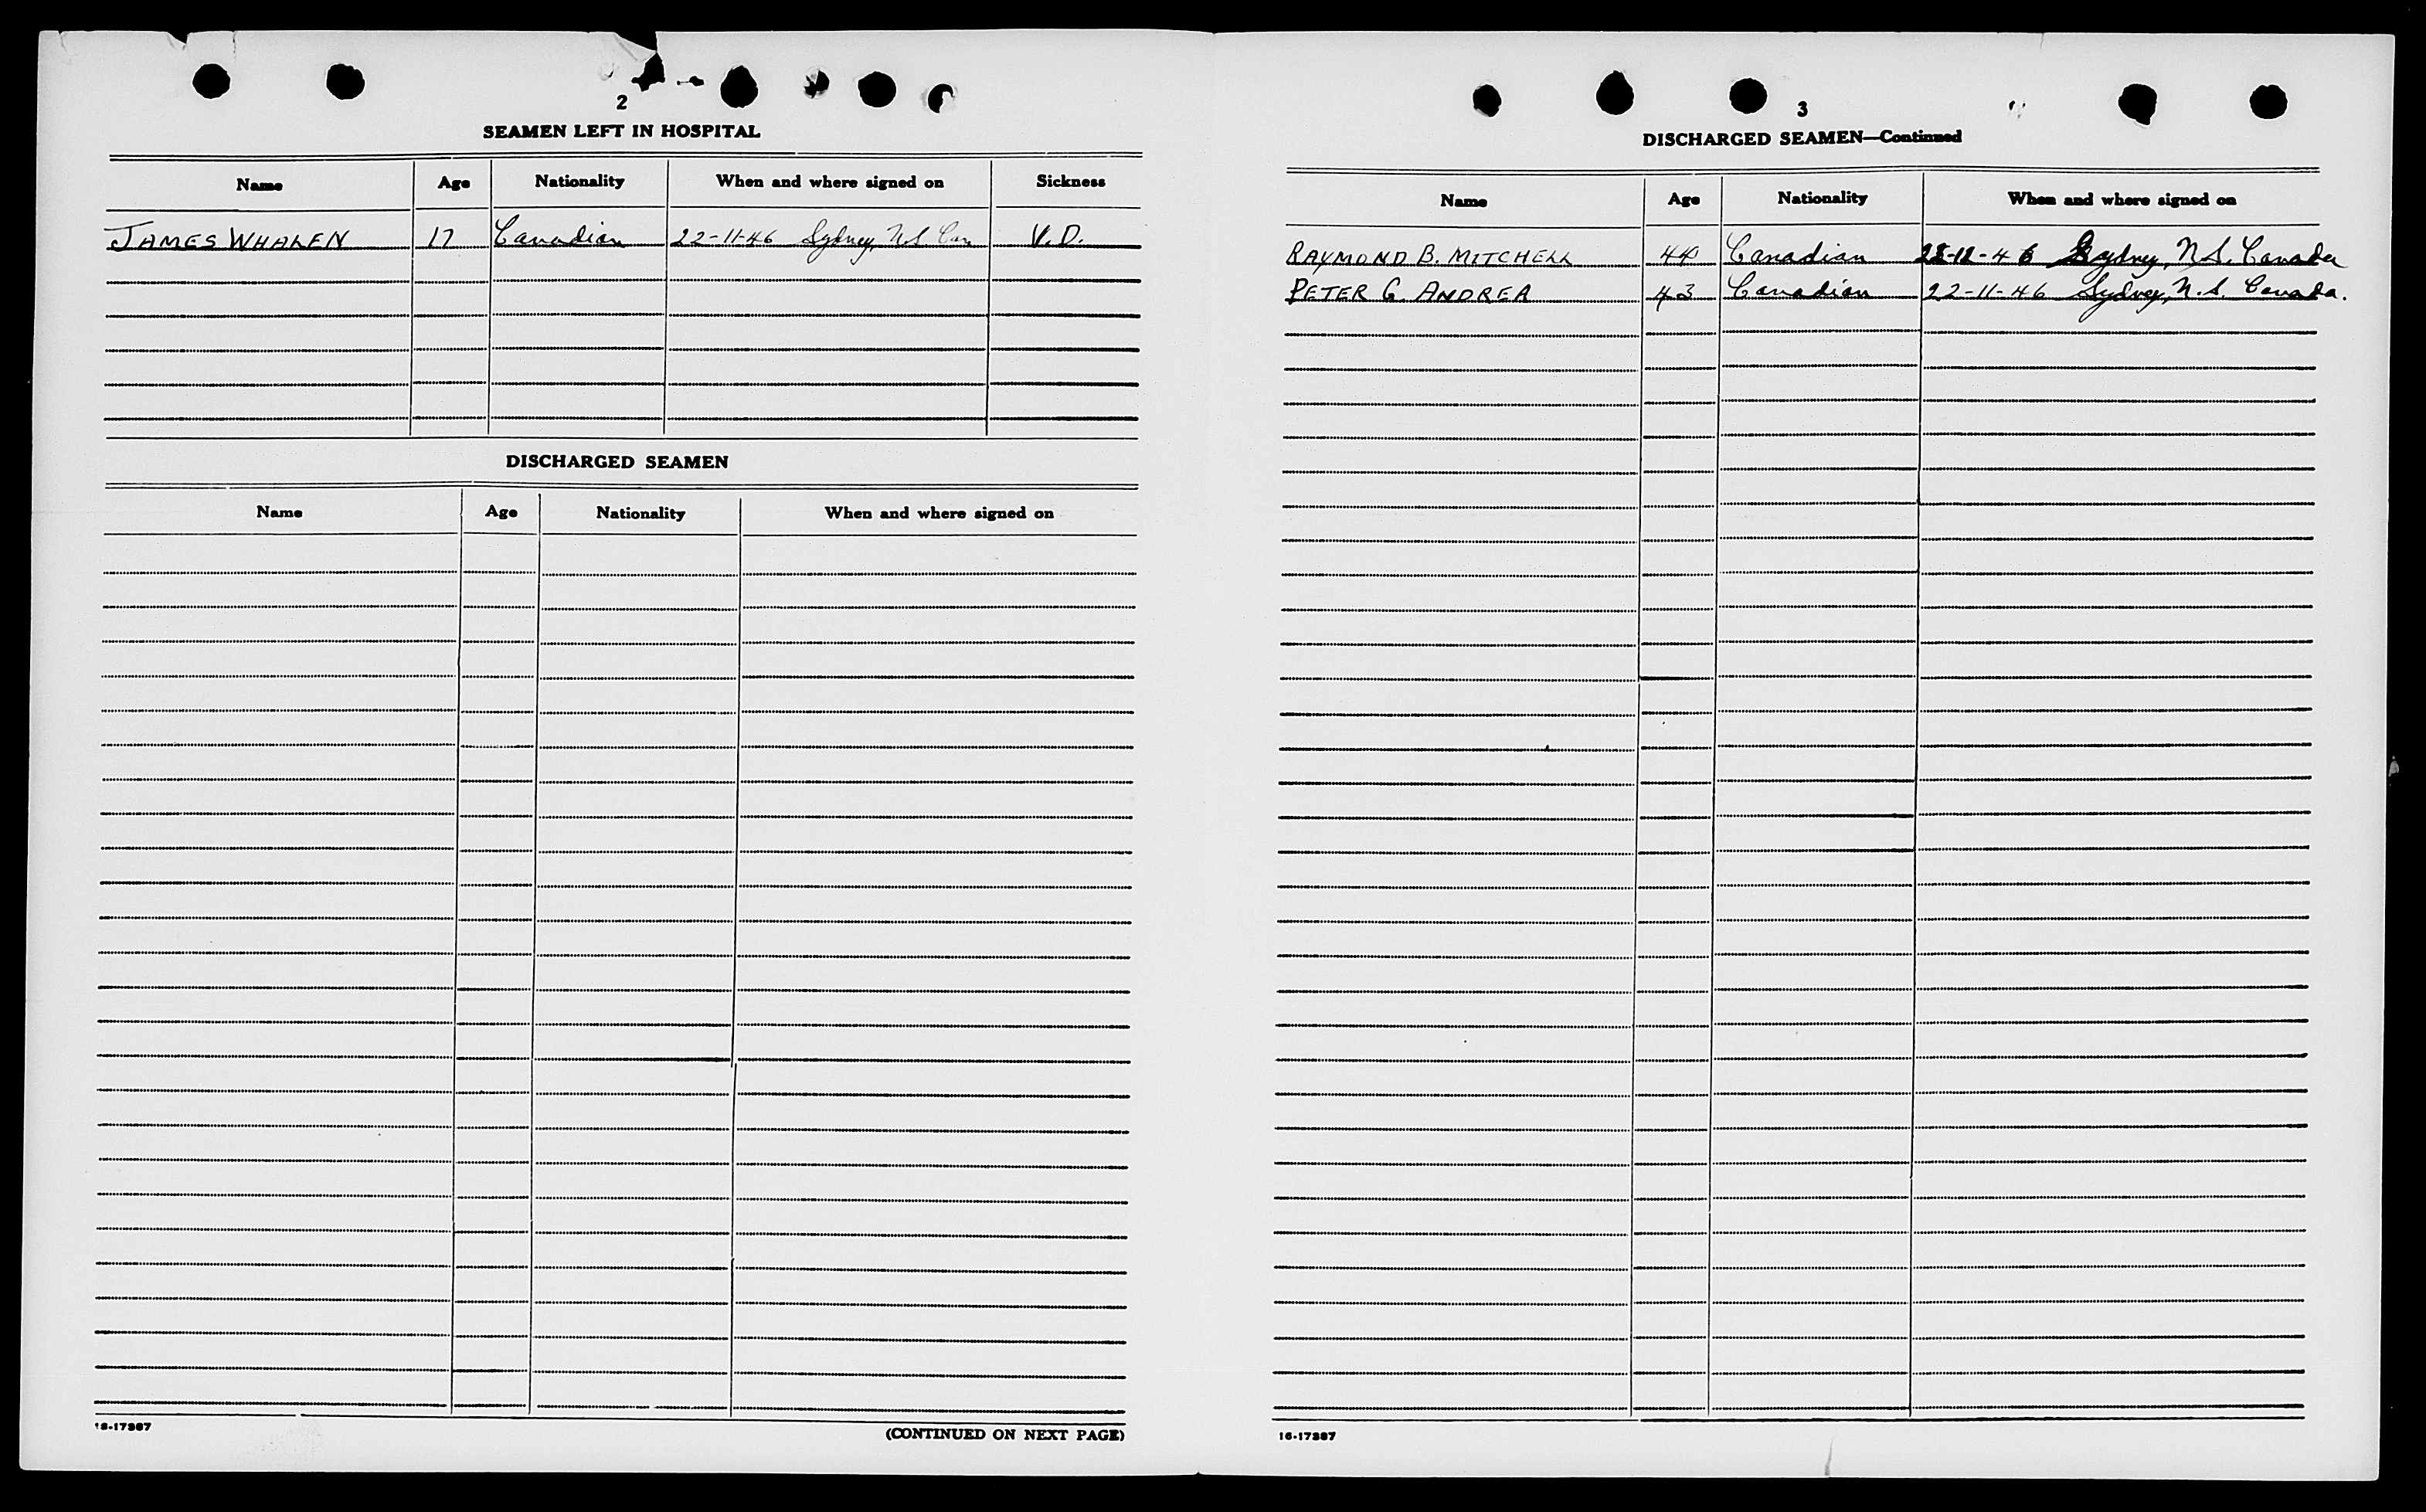 2
SEAMEN LEFT IN HOSPITAL
Name Age Nationality When and where signed on Sickness
JAMES WHALEN 17 Canadian 22-11-46 Sydney, N.S. Can V.D.
DISCHARGED SEAMEN
Name Age Nationality When and where signed on
16-17387
(CONTINUED ON NEXT PAGE)
3
DISCHARGED SEAMEN—Continued
Name Age Nationality When and where signed on
RAYMOND B. MITCHELL 44 Canadian Sydney, N.S. Canada
PETER G. ANDREA 43 Canadian 22-11-46 Sydney, N.S. Canada.
16-17387